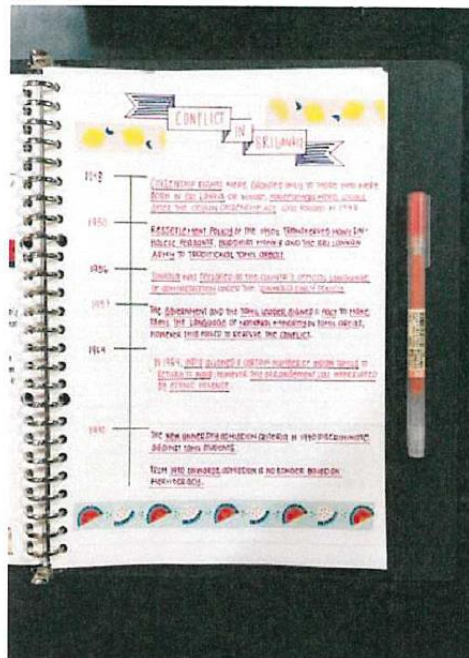 CONFLICT
IN
SRI LANKA
1948
CITIZENSHIP RIGHTS WERE GRANTED ONLY TO THOSE WHO WERE
BORN IN SRI LANKA OR WHOSE
AFTER THE CEYLON CITIZENSHIP ACT WAS PASSED IN 1948
1950
RESETTLEMENT POLICY OF THE 1950s TRANSFERRED MANY SIN-
HALESE PEASANTS, BUDDHIST MONKS AND THE SRI LANKAN
ARMY TO TRADITIONAL TAMIL AREAS.
1956
SINHALA WAS DECLARED AS THE COUNTRY'S OFFICIAL LANGUAGE
OF ADMINISTRATION UNDER THE 'SINHALA ONLY POLICY'
1957
THE GOVERNMENT AND THE TAMIL LEADER SIGNED A PACT TO MAKE
TAMIL THE LANGUAGE OF NATIONAL MINORITY IN TAMIL AREAS,
HOWEVER THIS FAILED TO RESOLVE THE CONFLICT.
1964
IN 1964, INDIA ALLOWED A CERTAIN NUMBER OF INDIAN TAMILS TO
RETURN TO INDIA, HOWEVER THE ARRANGEMENT WAS
BY ETHNIC VIOLENCE
1970
THE NEW UNIVERSITY ADMISSION CRITERIA IN 1970 DISCRIMINATE
AGAINST TAMIL STUDENTS.
FROM 1970 ONWARDS, ADMISSION IS NO LONGER BASED ON
MERITOCRACY.